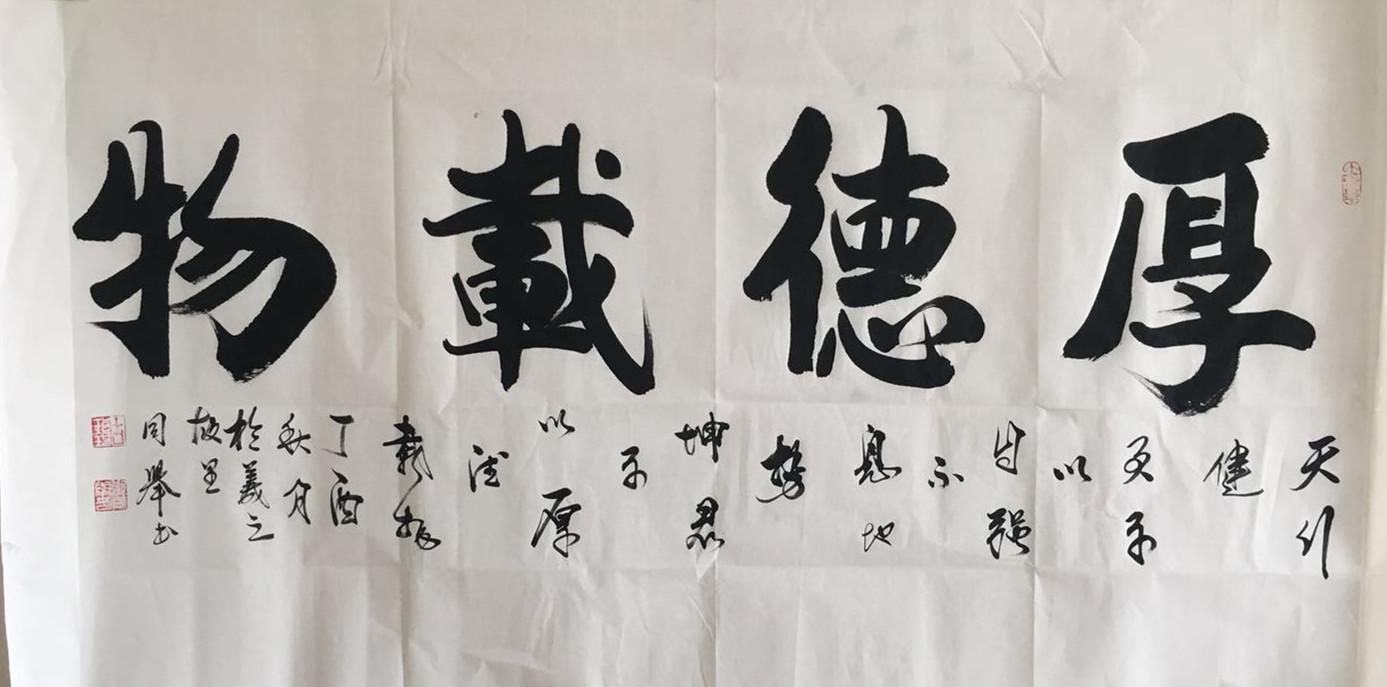 厚德載物
天行
健
君子
以
自强
不
息地
勢
坤君
子
以厚
德
載物
丁酉
秋月
於羲之
故里
同舉书